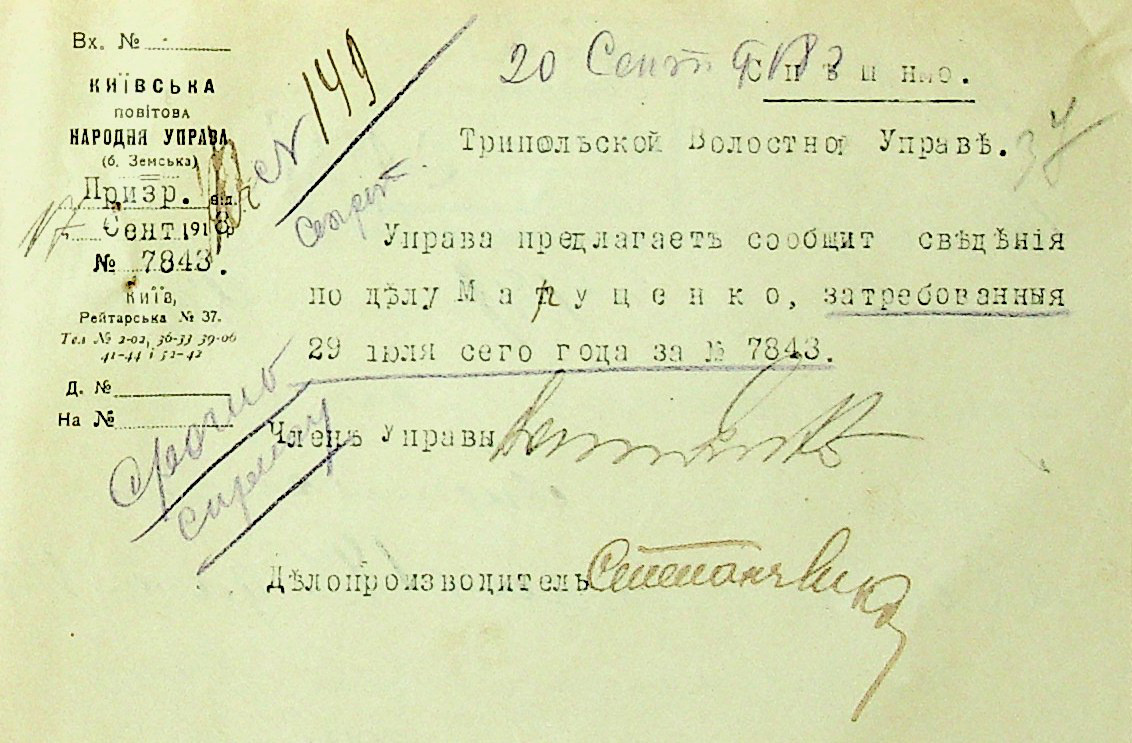 Вх. №
КИЇВСЬКА
ПОВІТОВА
НАРОДНЯ УПРАВА
(б. Земська)
Призр. від.
17 Сент. 1918
№ 7843.
Київ,
Рейтарська № 37.
Тел № 2-02, 36-33 39-06
41-44 і 52-42
Д. №
На №
№ 149
20 Сент 918
Спѣшно.
Трипольской Волостной Управѣ.
34
Управа предлагаетъ сообщит свѣдѣнія
по дѣлу Марущенко, затребованныя
29 іюля сего года за № 7843.
Срочно
Членъ Управы
Дѣлопроизводитель